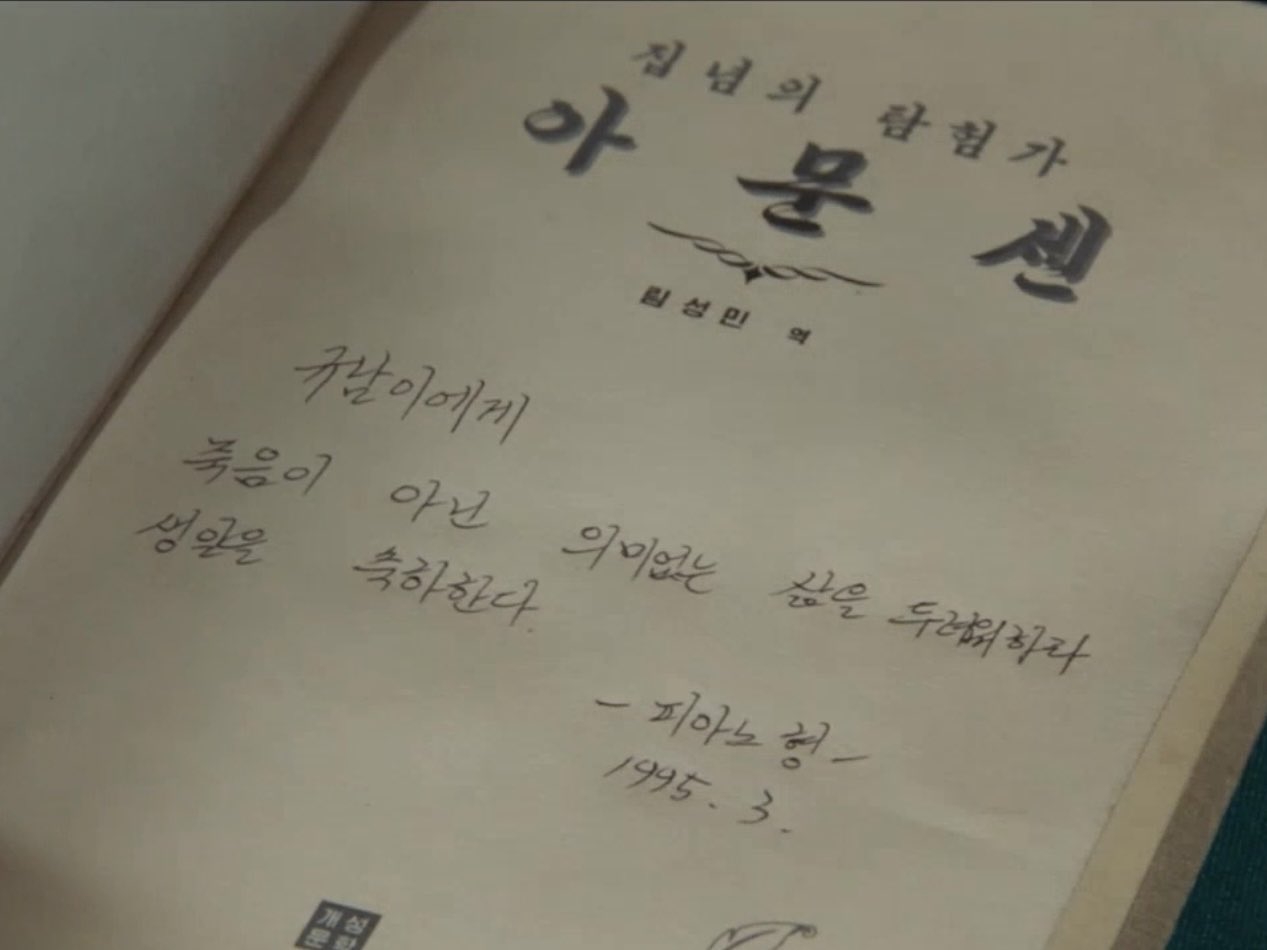 집념의 탐험가
아문센
림성민 역
규남이에게
죽음이 아닌 의미없는 삶을 두려워하라
생일을 축하한다.
- 피아노 형 -
1995. 3.
개성
문학